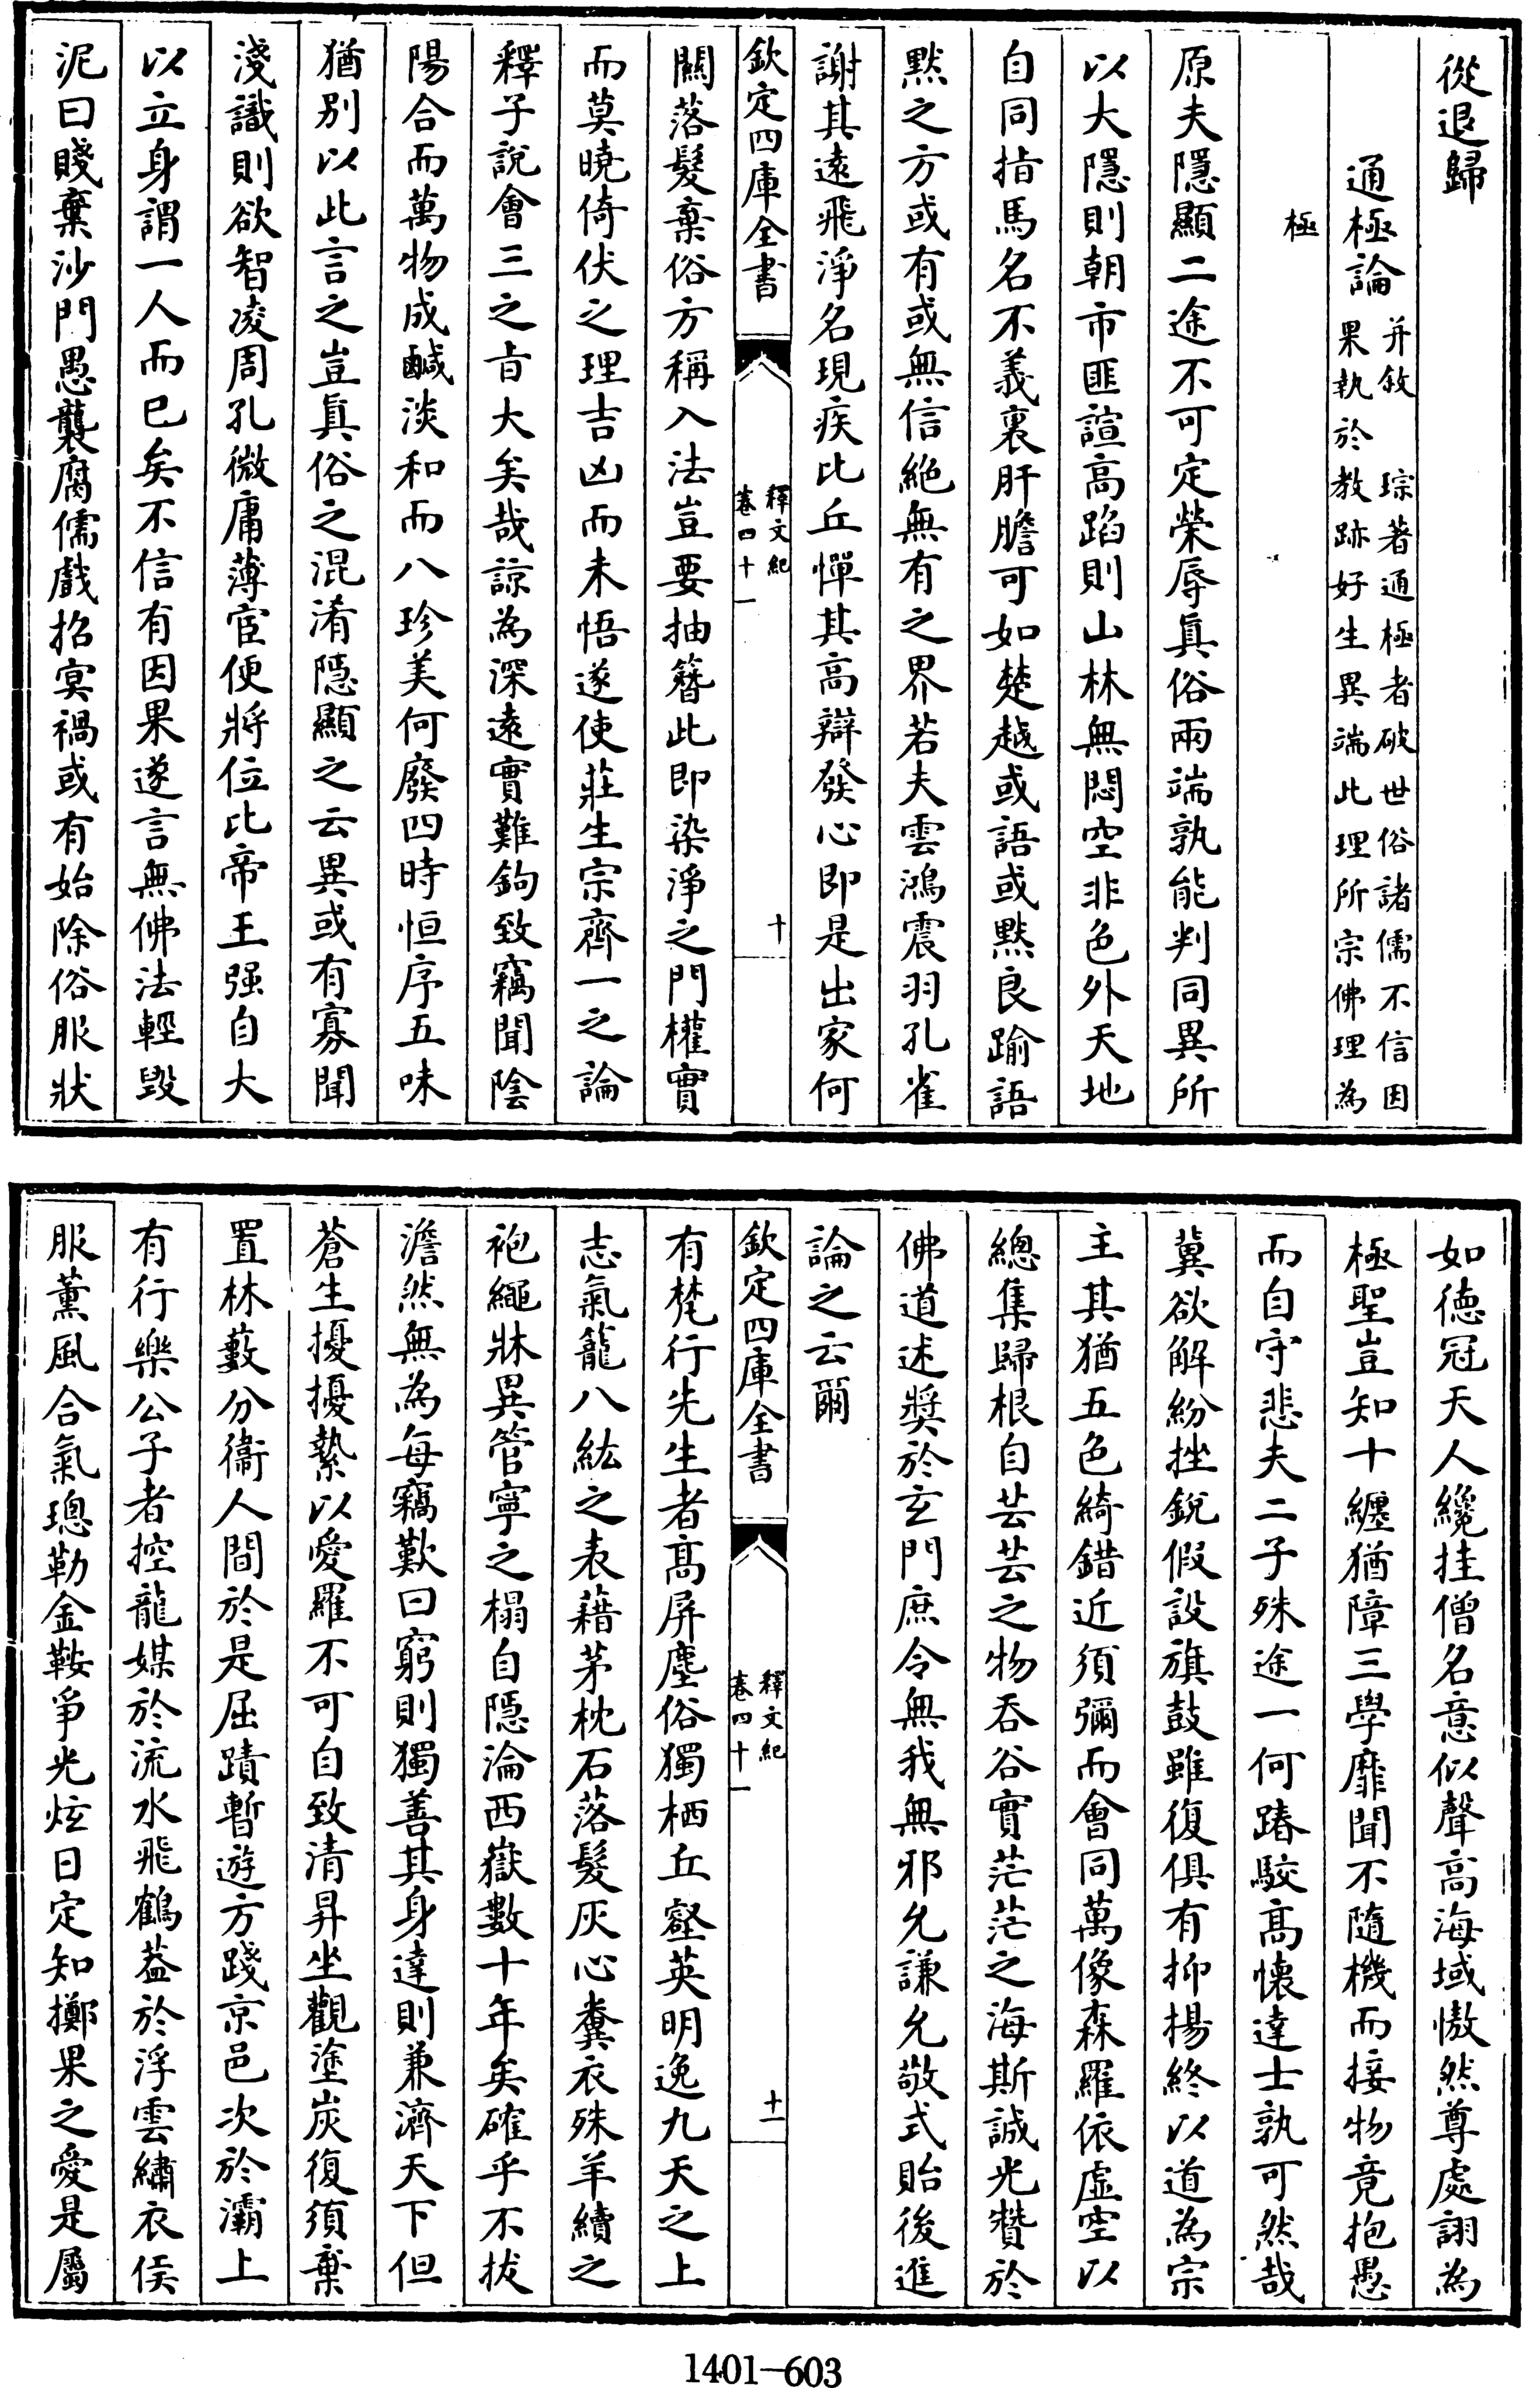 從退歸
通極論并敘　琮著通極者破世俗諸儒不信因
果執於教跡好生異端此理所宗佛理為
極
原夫隱顯二途不可定榮辱真俗兩端孰能判同異所
以大隱則朝市匪諠高蹈則山林無悶空非色外天地
自同指馬名不義裏肝膽可如楚越或語或默良踰語
默之方或有或無信絕無有之界若夫雲鴻震羽孔雀
謝其遠飛淨名現疾比丘憚其高辯發心即是出家何
欽定四庫全書
釋文紀
卷四十一
十
關落髮棄俗方稱入法豈要抽簪此即染淨之門權實
而莫曉倚伏之理吉凶而未悟遂使莊生宗齊一之論
釋子說會三之旨大矣哉諒為深遠實難鉤致竊聞陰
陽合而萬物成鹹淡和而八珍美何廢四時恒序五味
猶別以此言之豈真俗之混淆隱顯之云異或有寡聞
淺識則欲智凌周孔微庸薄宦便將位比帝王强自大
以立身謂一人而已矣不信有因果遂言無佛法輕毀
泥曰賤棄沙門愚襲腐儒戲招冥禍或有始除俗服狀
如德冠天人纔挂僧名意似聲高海域慠然尊處詡為
極聖豈知十纏猶障三學靡聞不隨機而接物竟抱愚
而自守悲夫二子殊途一何踳駮高懷達士孰可然哉
冀欲解紛挫銳假設旗鼓雖復俱有抑揚終以道為宗
主其猶五色綺錯近須彌而會同萬像森羅依虛空以
總集歸根自芸芸之物吞谷實茫茫之海斯誠光贊於
佛道述奬於玄門庶令無我無邪允謙允敬式貽後進
論之云爾
欽定四庫全書
釋文紀
卷四十一
十一
有梵行先生者高屏塵俗獨栖丘壑英明逸九天之上
志氣籠八紘之表藉茅枕石落髮灰心糞衣殊羊續之
袍繩牀異管寧之榻自隱淪西嶽數十年矣確乎不拔
澹然無為每竊歎曰窮則獨善其身達則兼濟天下但
蒼生擾擾縶以愛羅不可自致清昇坐觀塗炭復須棄
置林藪分衞人間於是屈蹟暫遊方踐京邑次於灞上
有行樂公子者控龍媒於流水飛鶴葢於浮雲繡衣侯
服薰風合氣璁勒金鞍爭光炫日定知擲果之愛是屬
1401—603